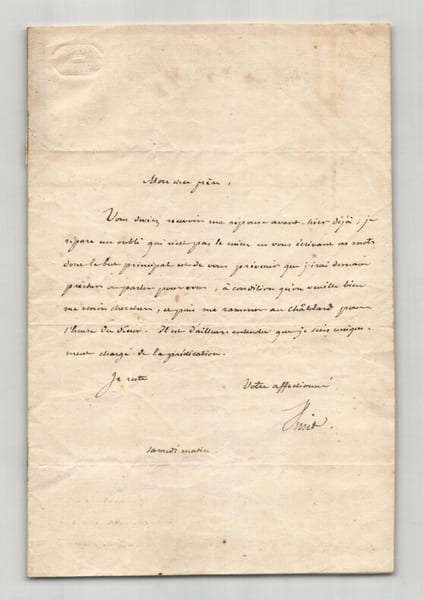 Mon cher frère,
Vous deviez recevoir ma réponse avant-hier déjà ; je
répare un oubli qui n'est pas le mien en vous écrivant ces mots
dont le but principal est de vous prévenir que j'irai demain
prêcher ou parler pour vous, à condition qu'on veuille bien
me venir chercher, et puis me ramener au Châtelard pour
l'heure du dîner. Il est d'ailleurs entendu que je suis unique-
ment chargé de la prédication.
Je reste
Votre affectionné
Vinet.
samedi matin.